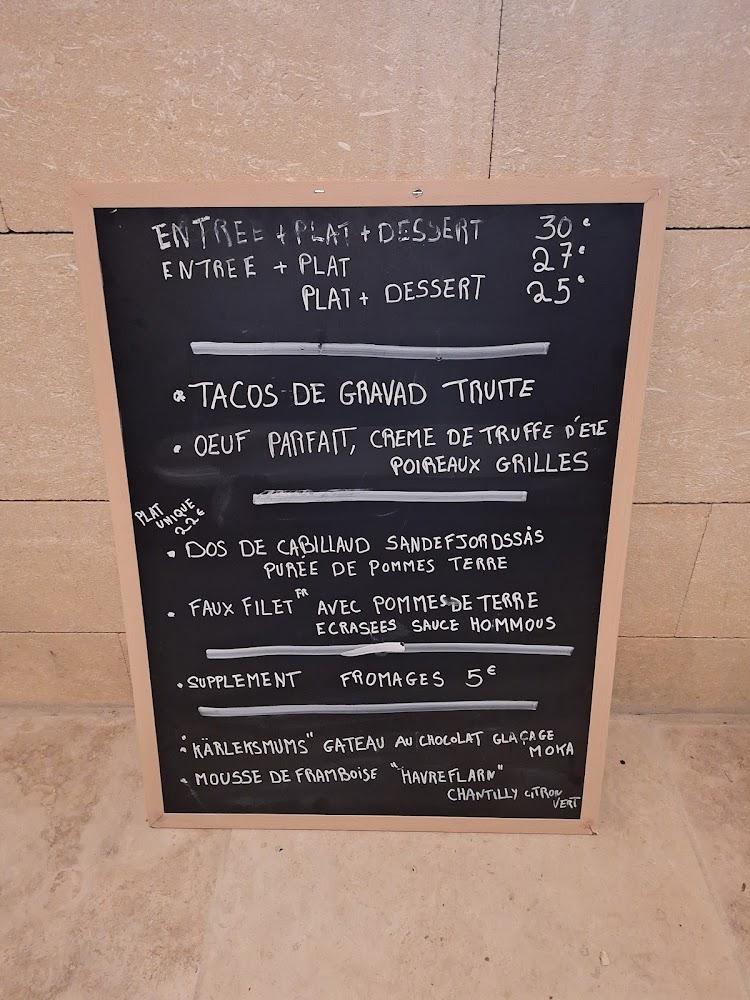 ENTREE + PLAT + DESSERT 30€
ENTREE + PLAT 27€
PLAT + DESSERT 25€
TACOS DE GRAVAD TRUITE
• OEUF PARFAIT, CREME DE TRUFFE D'ETE
POIREAUX GRILLES
PLAT
UNIQUE
22€
• DOS DE CABILLAUD SANDEFJORDSSÅS
PURÉE DE POMMES TERRE
• FAUX FILET FR AVEC POMMES DE TERRE
ECRASEES SAUCE HOMMOUS
• SUPPLEMENT FROMAGES 5€
• "KÄRLEKSMUMS" GATEAU AU CHOCOLAT GLAÇAGE
MOKA
• MOUSSE DE FRAMBOISE "HAVREFLARN"
CHANTILLY CITRON
VERT